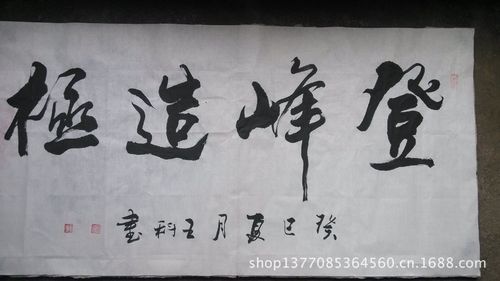 登峰造極
癸巳夏月王科書
shop1377085364560.cn.1688.com